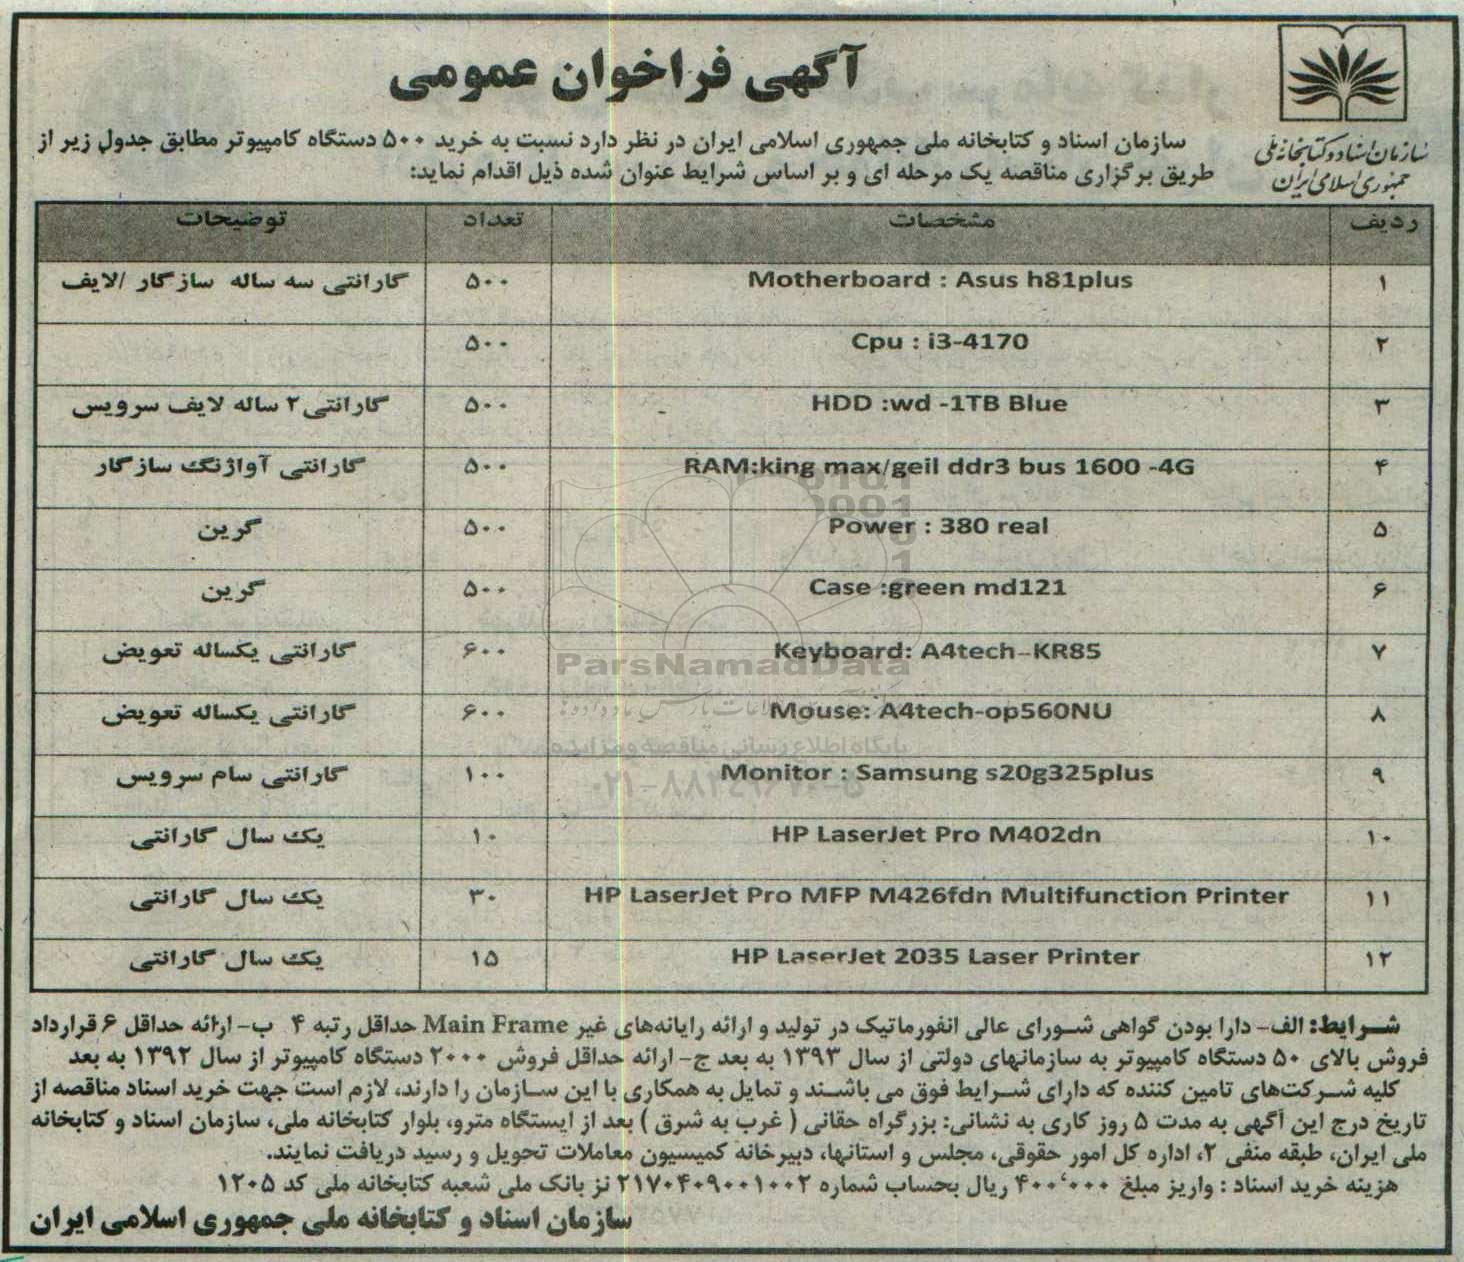 آگهی فراخوان عمومی
سازمان اسناد و کتابخانه ملی
جمهوری اسلامی ایران
سازمان اسناد و کتابخانه ملی جمهوری اسلامی ایران در نظر دارد نسبت به خرید ۵۰۰ دستگاه کامپیوتر مطابق جدول زیر از
طریق برگزاری مناقصه یک مرحله ای و بر اساس شرایط عنوان شده ذیل اقدام نماید:
ردیف مشخصات تعداد توضیحات
۱ Motherboard : Asus h81plus ۵۰۰ گارانتی سه ساله سازگار /لایف
۲ Cpu : i3-4170 ۵۰۰
۳ HDD :wd -1TB Blue ۵۰۰ گارانتی۲ ساله لایف سرویس
۴ RAM:king max/geil ddr3 bus 1600 -4G ۵۰۰ گارانتی آواژنگ سازگار
۵ Power : 380 real ۵۰۰ گرین
۶ Case :green md121 ۵۰۰ گرین
۷ Keyboard: A4tech-KR85 ۶۰۰ گارانتی یکساله تعویض
۸ Mouse: A4tech-op560NU ۶۰۰ گارانتی یکساله تعویض
۹ Monitor : Samsung s20g325plus ۱۰۰ گارانتی سام سرویس
۱۰ HP LaserJet Pro M402dn ۱۰ یک سال گارانتی
۱۱ HP LaserJet Pro MFP M426fdn Multifunction Printer ۳۰ یک سال گارانتی
۱۲ HP LaserJet 2035 Laser Printer ۱۵ یک سال گارانتی
ParsNamadData
پایگاه اطلاع رسانی مناقصه و مزایده
شرایط: الف- دارا بودن گواهی شورای عالی انفورماتیک در تولید و ارائه رایانه‌های غیر Main Frame حداقل رتبه ۴ ب- ارائه حداقل ۶ قرارداد
فروش بالای ۵۰ دستگاه کامپیوتر به سازمانهای دولتی از سال ۱۳۹۳ به بعد ج- ارائه حداقل فروش ۲۰۰۰ دستگاه کامپیوتر از سال ۱۳۹۲ به بعد
کلیه شرکت‌های تامین کننده که دارای شرایط فوق می باشند و تمایل به همکاری با این سازمان را دارند، لازم است جهت خرید اسناد مناقصه از
تاریخ درج این آگهی به مدت ۵ روز کاری به نشانی: بزرگراه حقانی ( غرب به شرق ) بعد از ایستگاه مترو، بلوار کتابخانه ملی، سازمان اسناد و کتابخانه
ملی ایران، طبقه منفی ۲، اداره کل امور حقوقی، مجلس و استانها، دبیرخانه کمیسیون معاملات تحویل و رسید دریافت نمایند.
هزینه خرید اسناد : واریز مبلغ ۴۰۰٬۰۰۰ ریال بحساب شماره ۲۱۷۰۴۰۹۰۰۱۰۰۲ نز بانک ملی شعبه کتابخانه ملی کد ۱۲۰۵
سازمان اسناد و کتابخانه ملی جمهوری اسلامی ایران